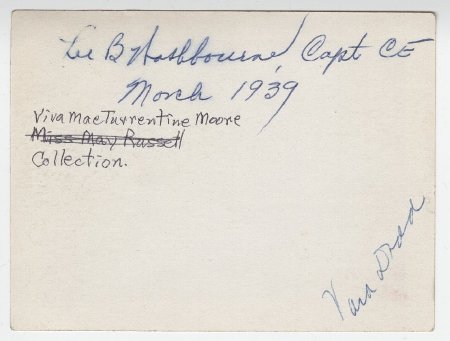 Lee B Washbourne, Capt CE
March 1939
Viva Mae Turrentine Moore
Miss May Russell
Collection.
Vara Drod